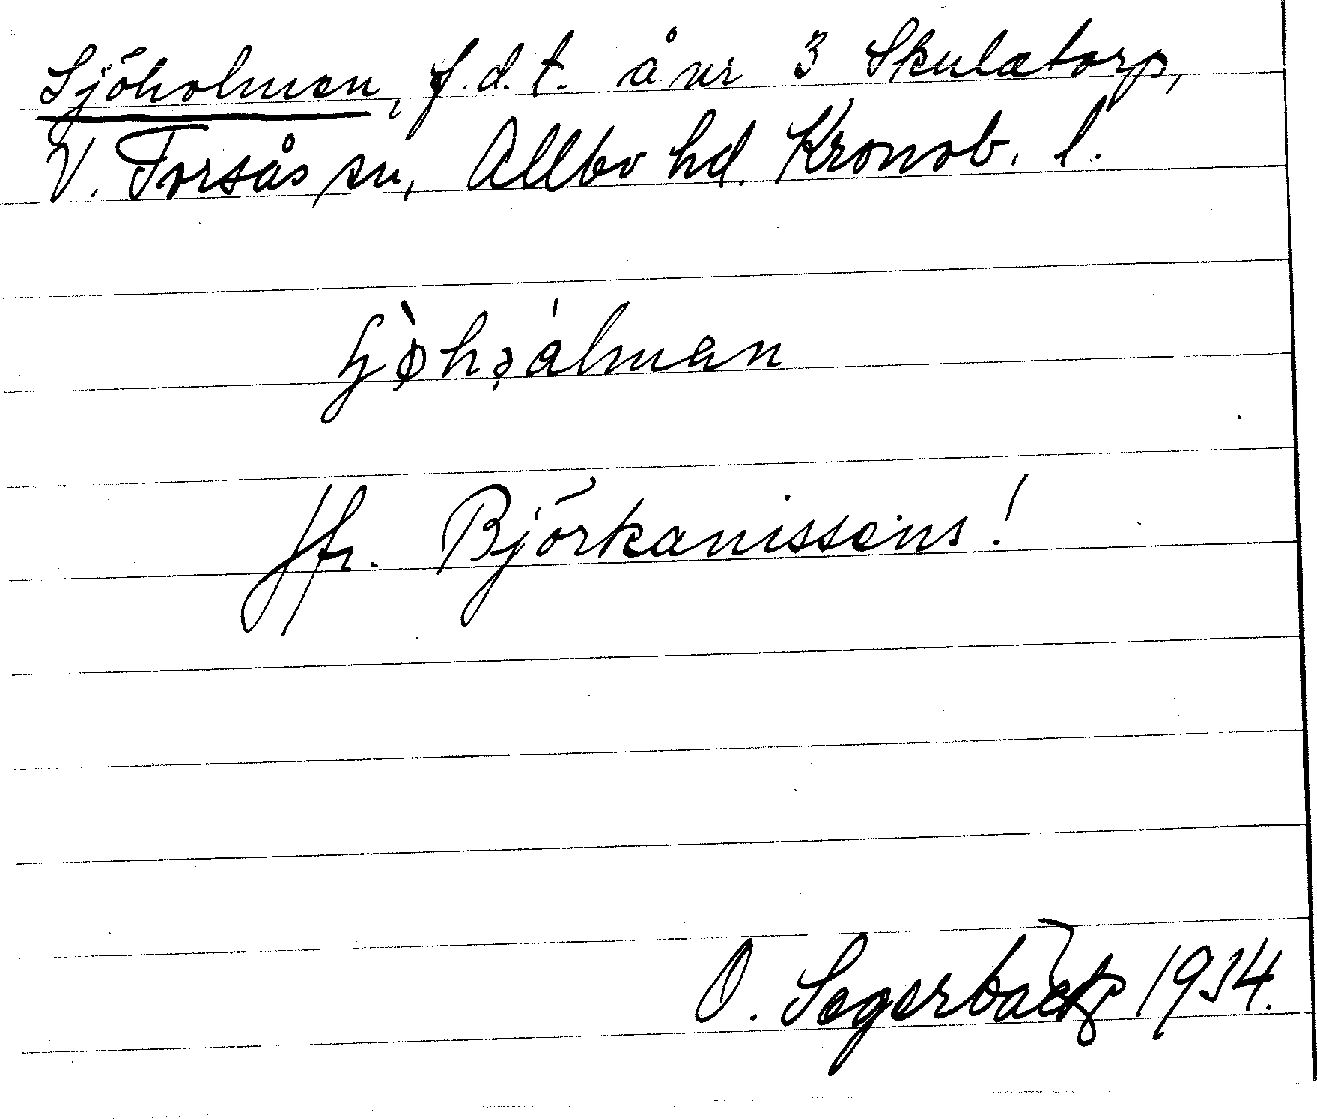 Sjöholmen, f.d.t. å nr 3 Skulatorp,
V. Torsås sn, Allbo hd. Kronob. l.
Jfr. Björkanissens!
O. Segerbäck 1934.